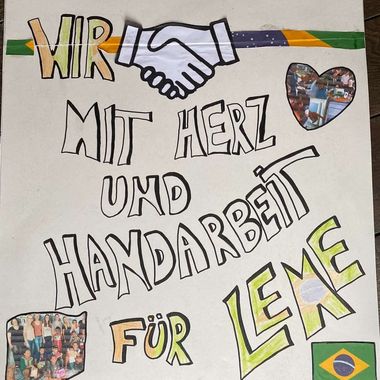 WIR
MIT HERZ
UND
HANDARBEIT
FÜR LEME